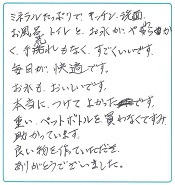 ミネラルたっぷりで、キッチン、洗面、
お風呂、トイレと、お水がやわらか
く、手荒れもなく、すごくいいです。
毎日が、快適です。
お水も、おいしいです。
本当に、つけてよかったです。
重い、ペットボトルを買わなくてすみ、
助かっています。
良い物を作っていただき、
ありがとうございました。